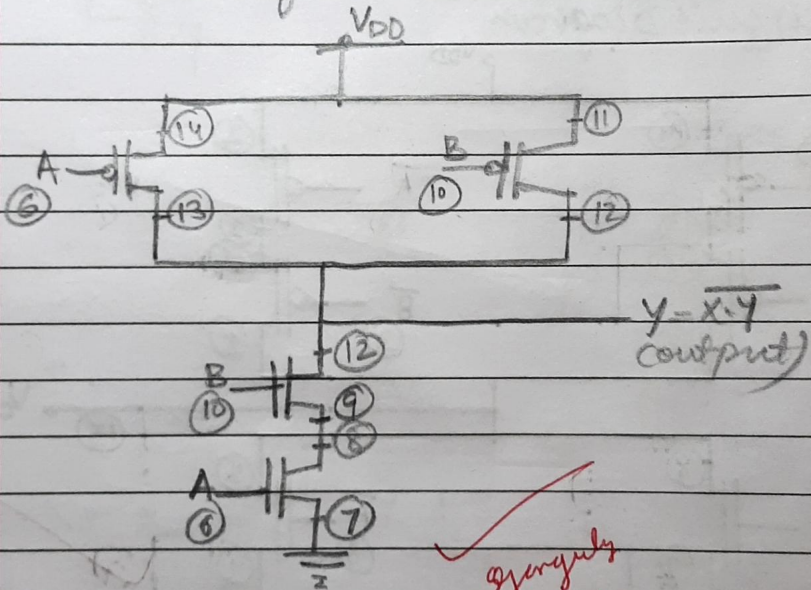 VDD
14
11
A
B
6
10
13
12
Y = \overline{X·Y}
(output)
12
B
10
9
8
A
6
7